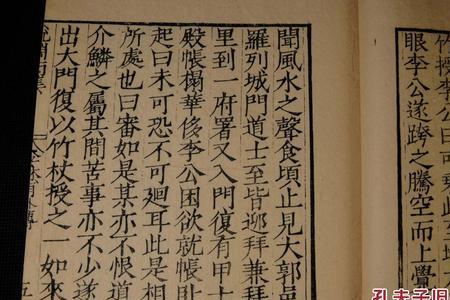 竹授李公
眼李公遂跨之騰空而上覺
聞風水之聲食頃止見大郭邑
羅列城門道士至皆迎拜兼拜
里到一府署又入門復有甲士
殿帳榻華侈李公困欲就帳卧
起曰未可恐不可廻耳此是相
所處也曰審如是某亦不恨道
介鱗之屬其間苦事亦不少遂
出大門復以竹杖授之一如來
五
孔夫子旧